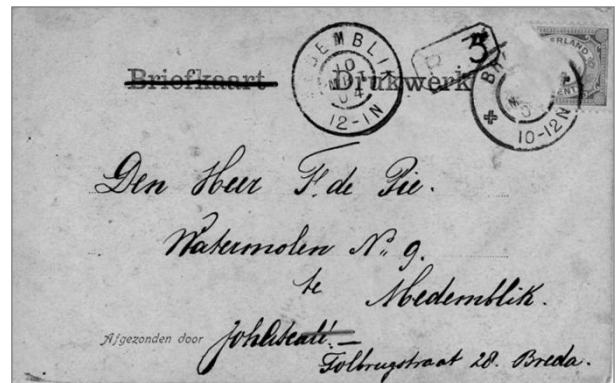 Briefkaart Drukwerk
EMBLIK
10
04
12-1N
B
3
BR
ERLAND
ENT
10-12N
Den Heer F. de Pie.
Watermolen No. 9.
te Medemblik.
Afgezonden door
Tolbrugstraat 28. Breda.